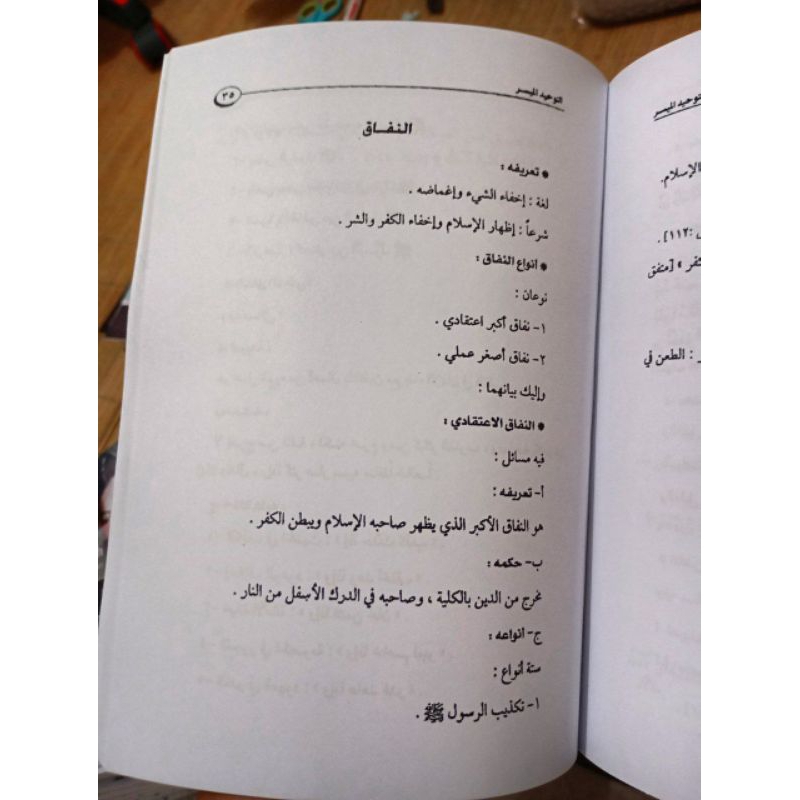 التوحيد الميسر
٣٥
النفـاق
* تعريفه :
لغة : إخفاء الشيء وإغماضه .
شرعاً : إظهار الإسلام وإخفاء الكفر والشر .
* انواع النفاق :
نوعان :
١- نفاق أكبر اعتقادي .
٢- نفاق أصغر عملي .
وإليك بيانهما :
* النفاق الاعتقادي :
فيه مسائل :
أ- تعريفه :
هو النفاق الأكبر الذي يظهر صاحبه الإسلام ويبطن الكفر .
ب- حكمه :
مخرج من الدين بالكلية ، وصاحبه في الدرك الأسفل من النار .
ج- انواعه :
ستة أنواع :
١- تكذيب الرسول ﷺ .
التوحيد الميسر
الإسلام.
: ١١٢] .
كفر » [متفق
: الطعن في